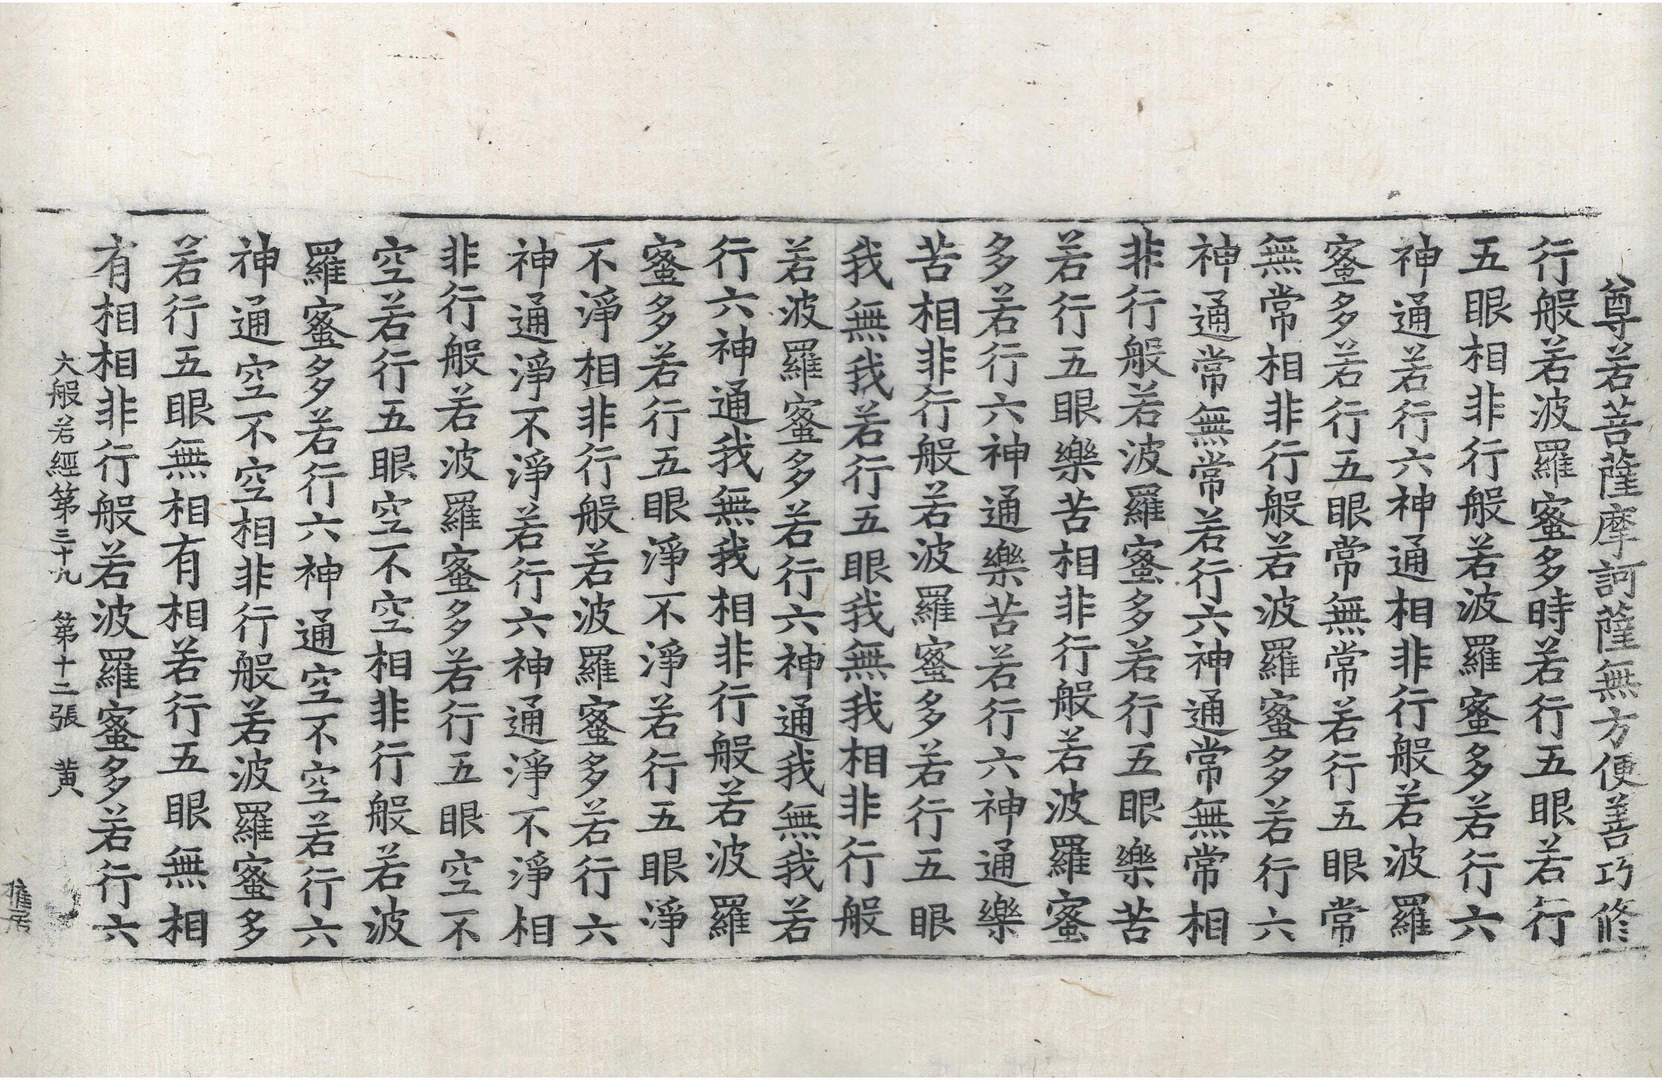 尊若菩薩摩訶薩無方便善巧修
行般若波羅蜜多時若行五眼若行
五眼相非行般若波羅蜜多若行六
神通若行六神通相非行般若波羅
蜜多若行五眼常無常若行五眼常
無常相非行般若波羅蜜多若行六
神通常無常若行六神通常無常相
非行般若波羅蜜多若行五眼樂苦
若行五眼樂苦相非行般若波羅蜜
多若行六神通樂苦若行六神通樂
苦相非行般若波羅蜜多若行五眼
我無我若行五眼我無我相非行般
若波羅蜜多若行六神通我無我若
行六神通我無我相非行般若波羅
蜜多若行五眼淨不淨若行五眼淨
不淨相非行般若波羅蜜多若行六
神通淨不淨若行六神通淨不淨相
非行般若波羅蜜多若行五眼空不
空若行五眼空不空相非行般若波
羅蜜多若行六神通空不空若行六
神通空不空相非行般若波羅蜜多
若行五眼無相有相若行五眼無相
有相相非行般若波羅蜜多若行六
大般若經第三十九 第十二張 黃